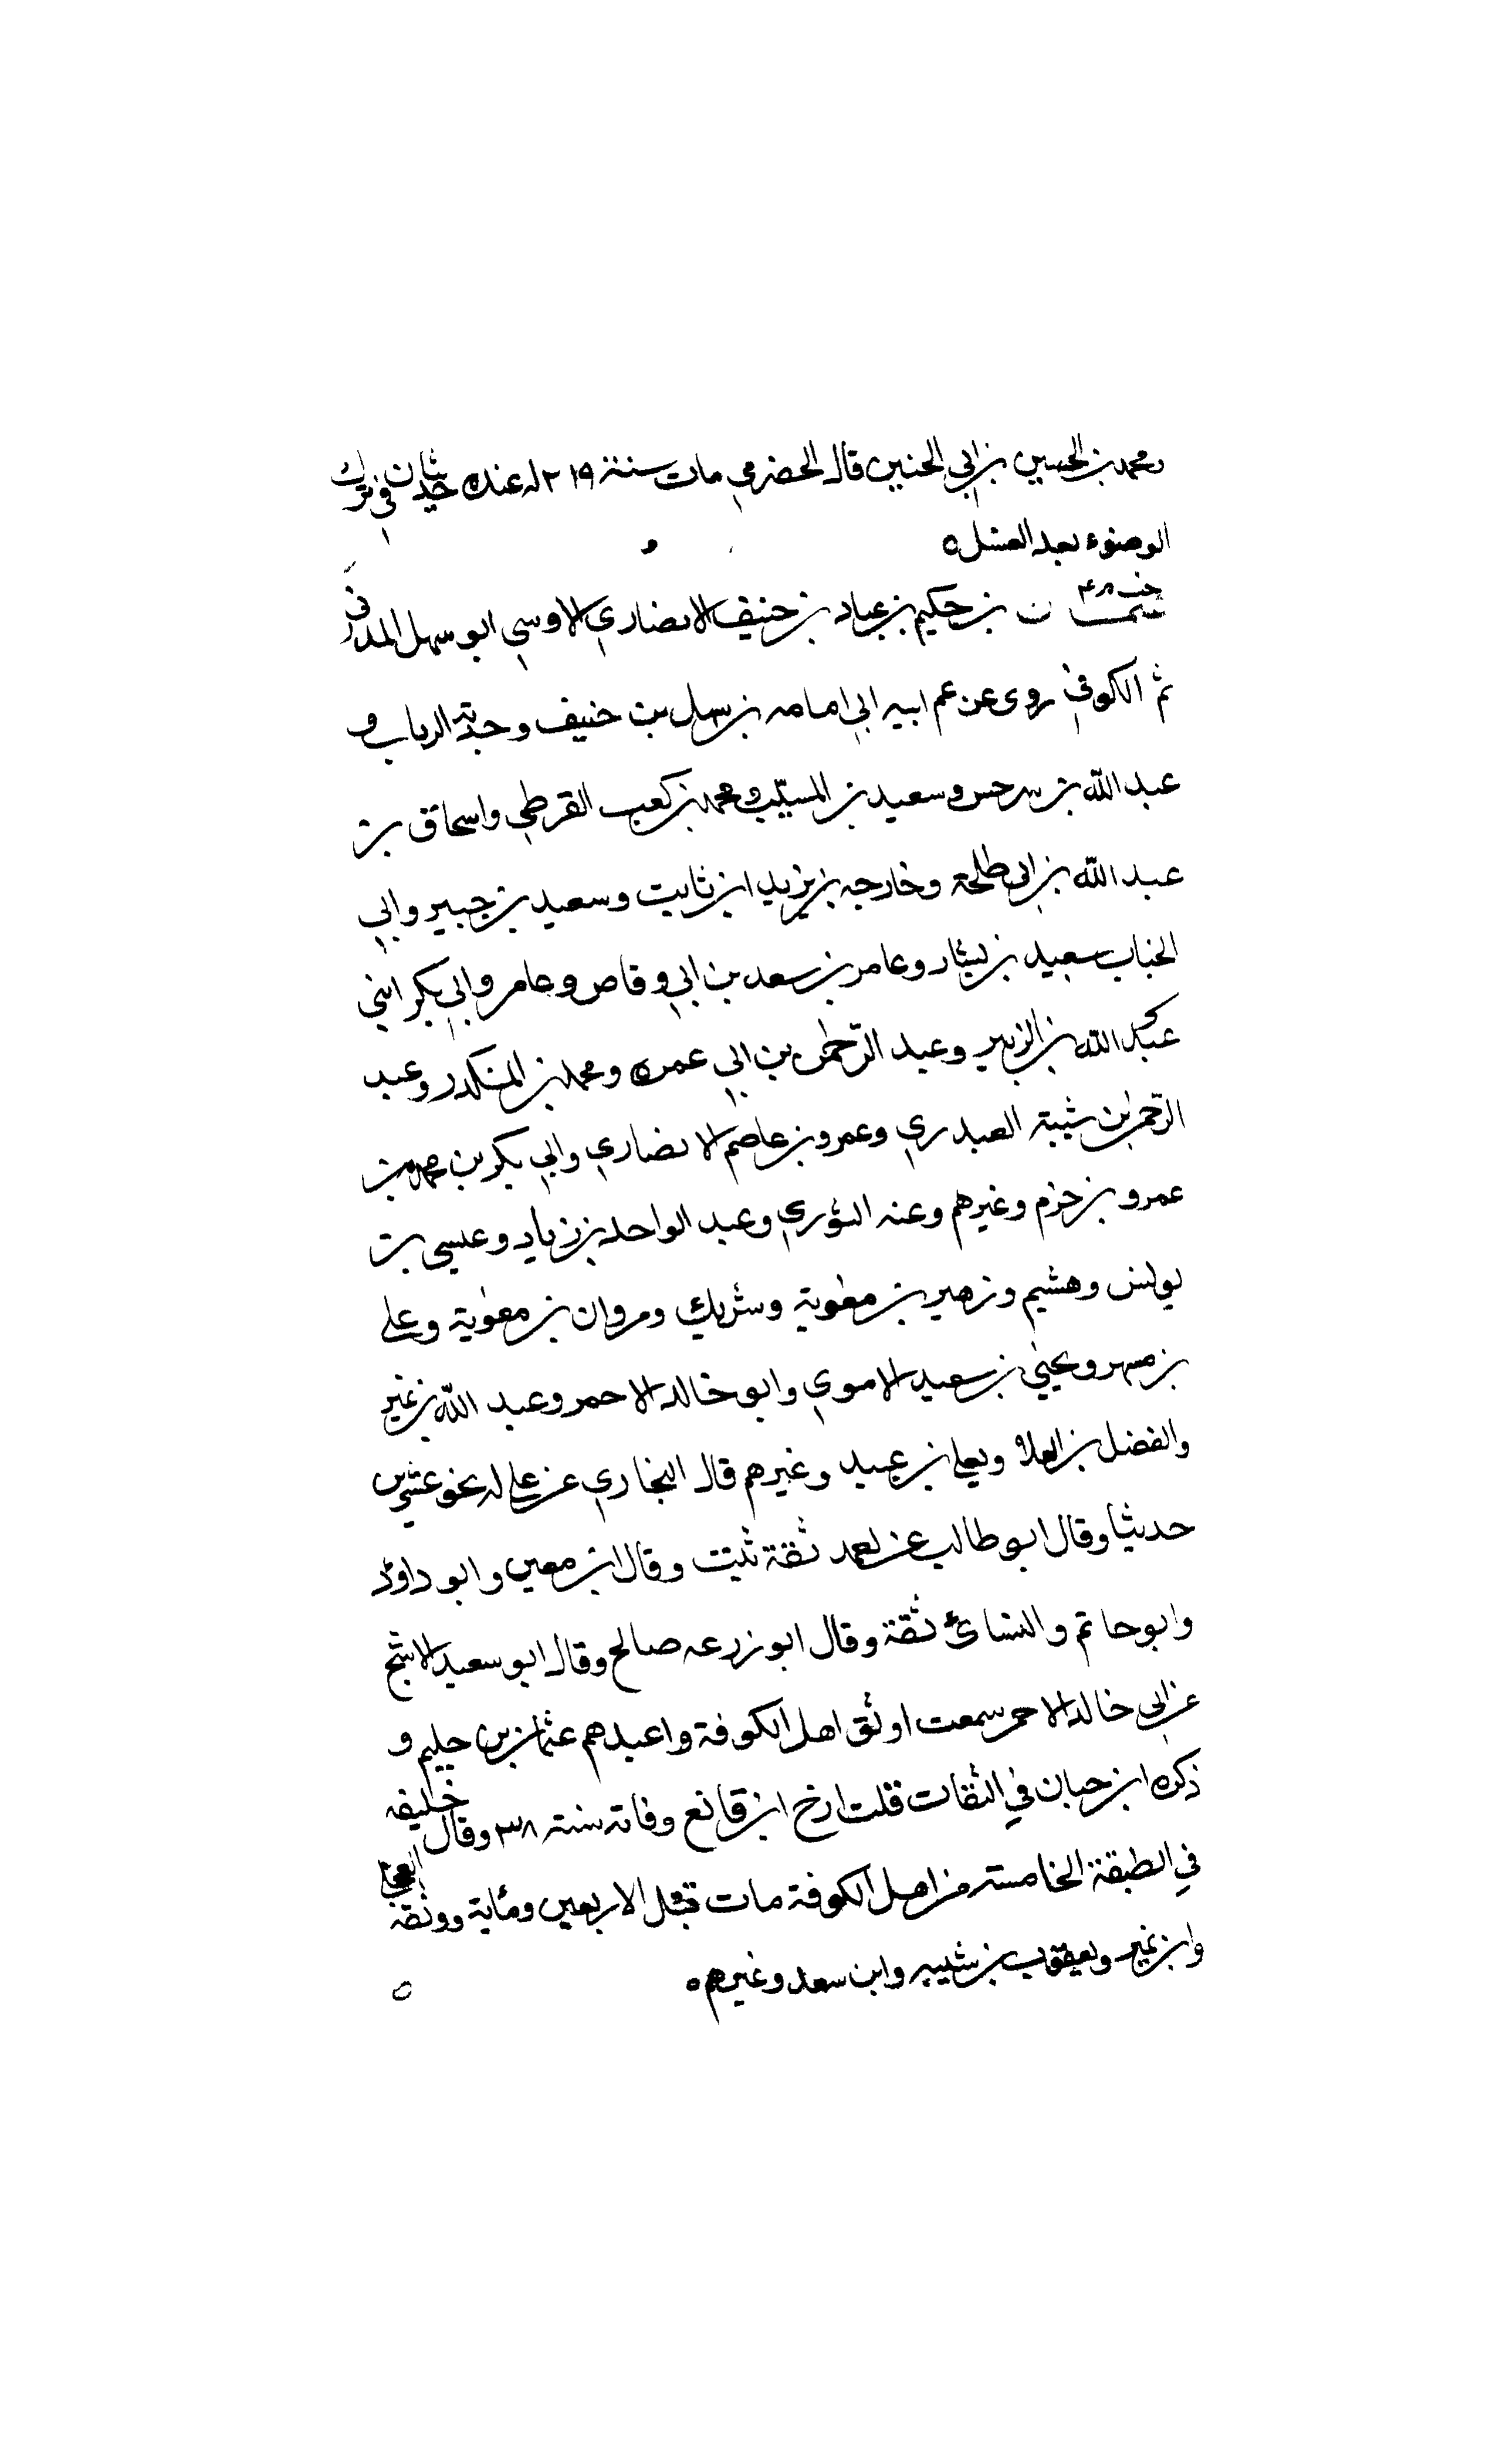 ومحمد بن الحسين بن ابي الحنين قال الحضرمي مات سنة ٢١٩ له عنده حديثان في ترك
الوضوء بعد الغسل ه
خت م ٤ عثمان بن حكيم بن عباد بن حنيف الانصاري الاوسي ابو سهل المدني
ثم الكوفي روى عن عم ابيه ابي امامه بن سهل بن حنيف وجدته الرباب و
عبد الله بن سرجس وسعيد بن المسيب ومحمد بن كعب القرظي واسحاق بن
عبد الله بن ابي طلحة وخارجه بن يزيد ابن ثابت وسعيد بن جبير وابي
الحباب سعيد بن يسار وعامر بن سعد بن ابي وقاص وعامر وابي بكر ابني
عبد الله بن الزبير وعبد الرحمن بن ابي عمره ومحمد بن المنكدر وعبد
الرحمن بن شيبة العبدري وعمرو بن عاصم الانصاري وابي بكر بن محمد بن
عمرو بن حزم وغيرهم وعنه الثوري وعبد الواحد بن زياد وعيسى بن
يونس وهشيم وزهير بن معوية وشريك ومروان بن معوية وعلي
بن مسهر ويحيى بن سعيد الاموي وابو خالد الاحمر وعبد الله بن نمير
والفضل بن العلاء ويعلى بن عبيد وغيرهم قال البخاري عن علي له نحو عشرين
حديثا وقال ابو طالب عن احمد ثقة ثبت وقال ابن معين وابو داود
وابو حاتم والنسائ ثقة وقال ابو زرعه صالح وقال ابو سعيد الاشج
عن ابي خالد الاحمر سمعت اوثق اهل الكوفة واعبدهم عثمان بن حكيم و
ذكره ابن حبان في الثقات قلت ارخ ابن قانع وفاته سنة ٣٨ وقال خليفه
في الطبقة الخامسة من اهل الكوفة مات قبل الاربعين ومائة ووثقه العجلي
وابن نمير ويعقوب بن شيبه وابن سعد وغيرهم ه